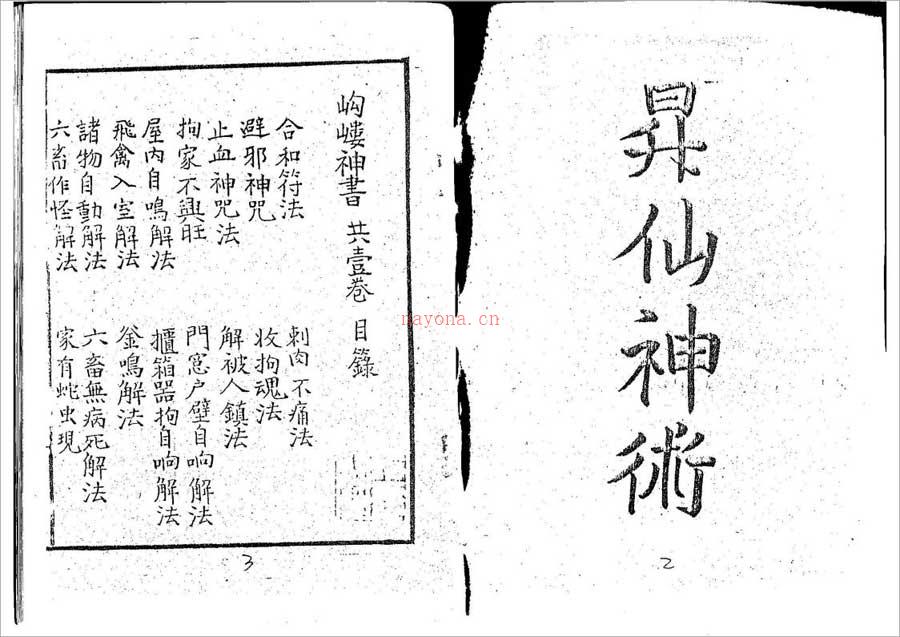 昇仙神術
2
岣嶁神書 共壹卷 目錄
合和符法
刺肉不痛法
避邪神咒
收拘魂法
止血神咒法
解被人鎮法
拘家不興旺
門窓户壁自响解法
屋內自鳴解法
櫃箱器拘自响解法
飛禽入室解法
釜鳴解法
諸物自動解法
六畜無病死解法
六畜作怪解法
家有蛇虫現
3
nayona.cn